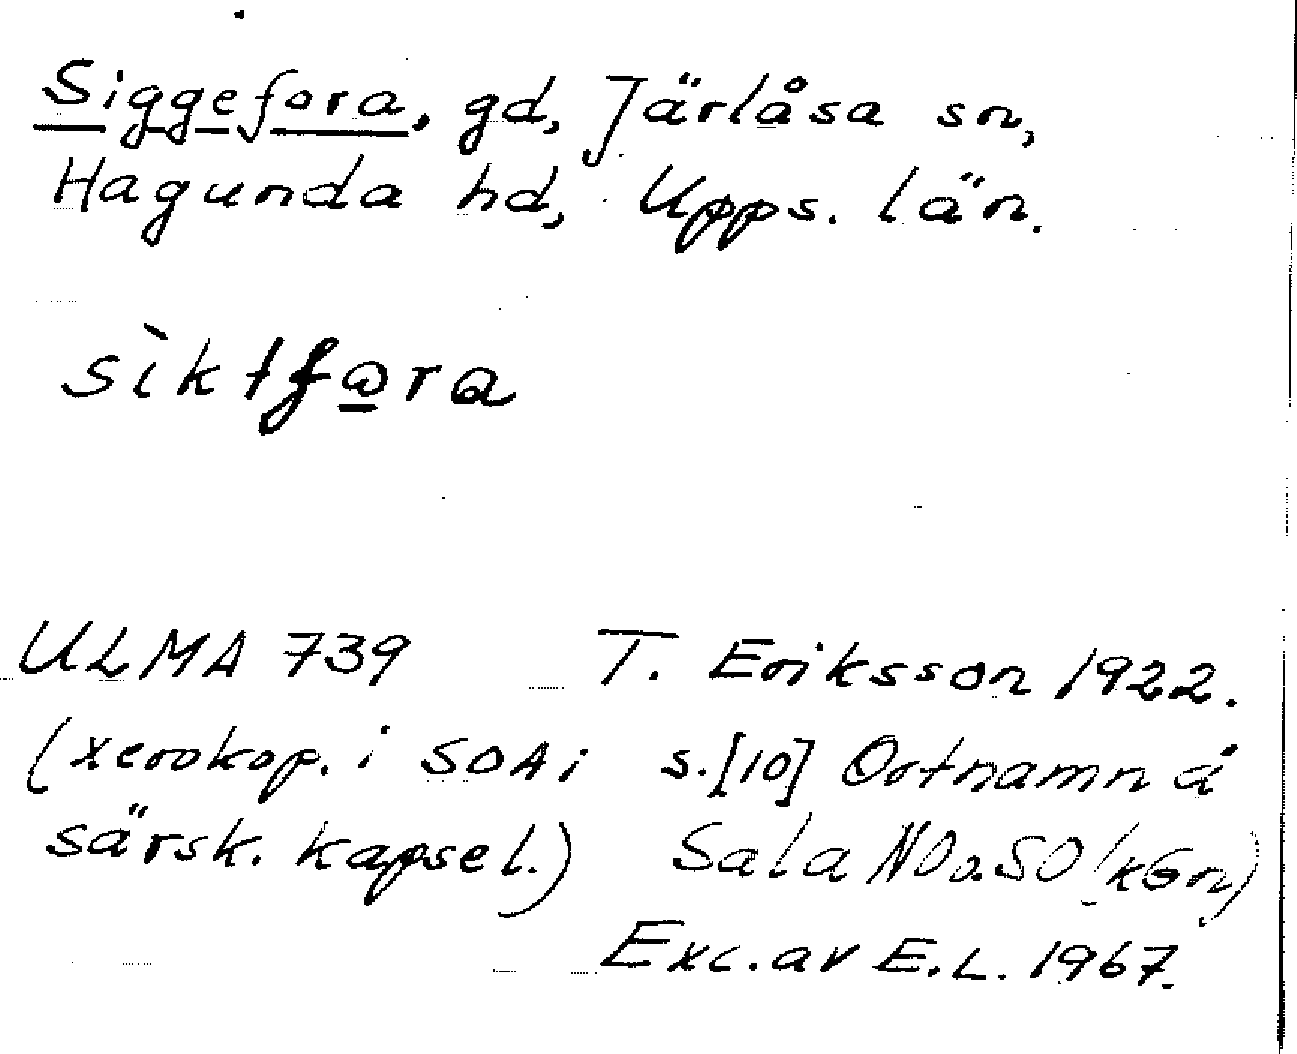 Siggefora, gd, Järlåsa sn,
Hagunda hd, Upps. län.
sìktfara
ULMA 739 T. Eriksson 1922.
(xerokop. i SOA i s.[10] Ortnamn å
särsk. kapsel.) Sala NO o. SO
Exc. av E.L. 1967.